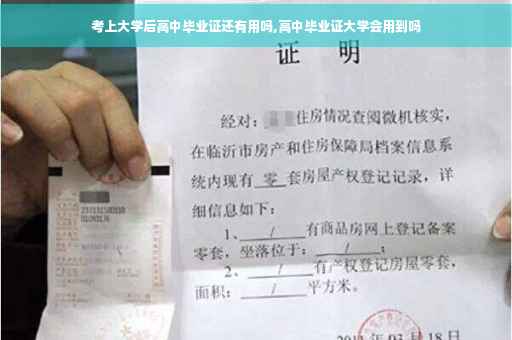 考上大学后高中毕业证还有用吗,高中毕业证大学会用到吗
证 明
经对: 住房情况查阅微机核实,
在临沂市房产和住房保障局档案信息系
统内现有 零 套房屋产权登记记录,详
细信息如下:
1、 / 有商品房网上登记备案
零套,坐落位于: / ;
2、 / 有产权登记房屋零套,
面积: / 平方米。
月 18 日